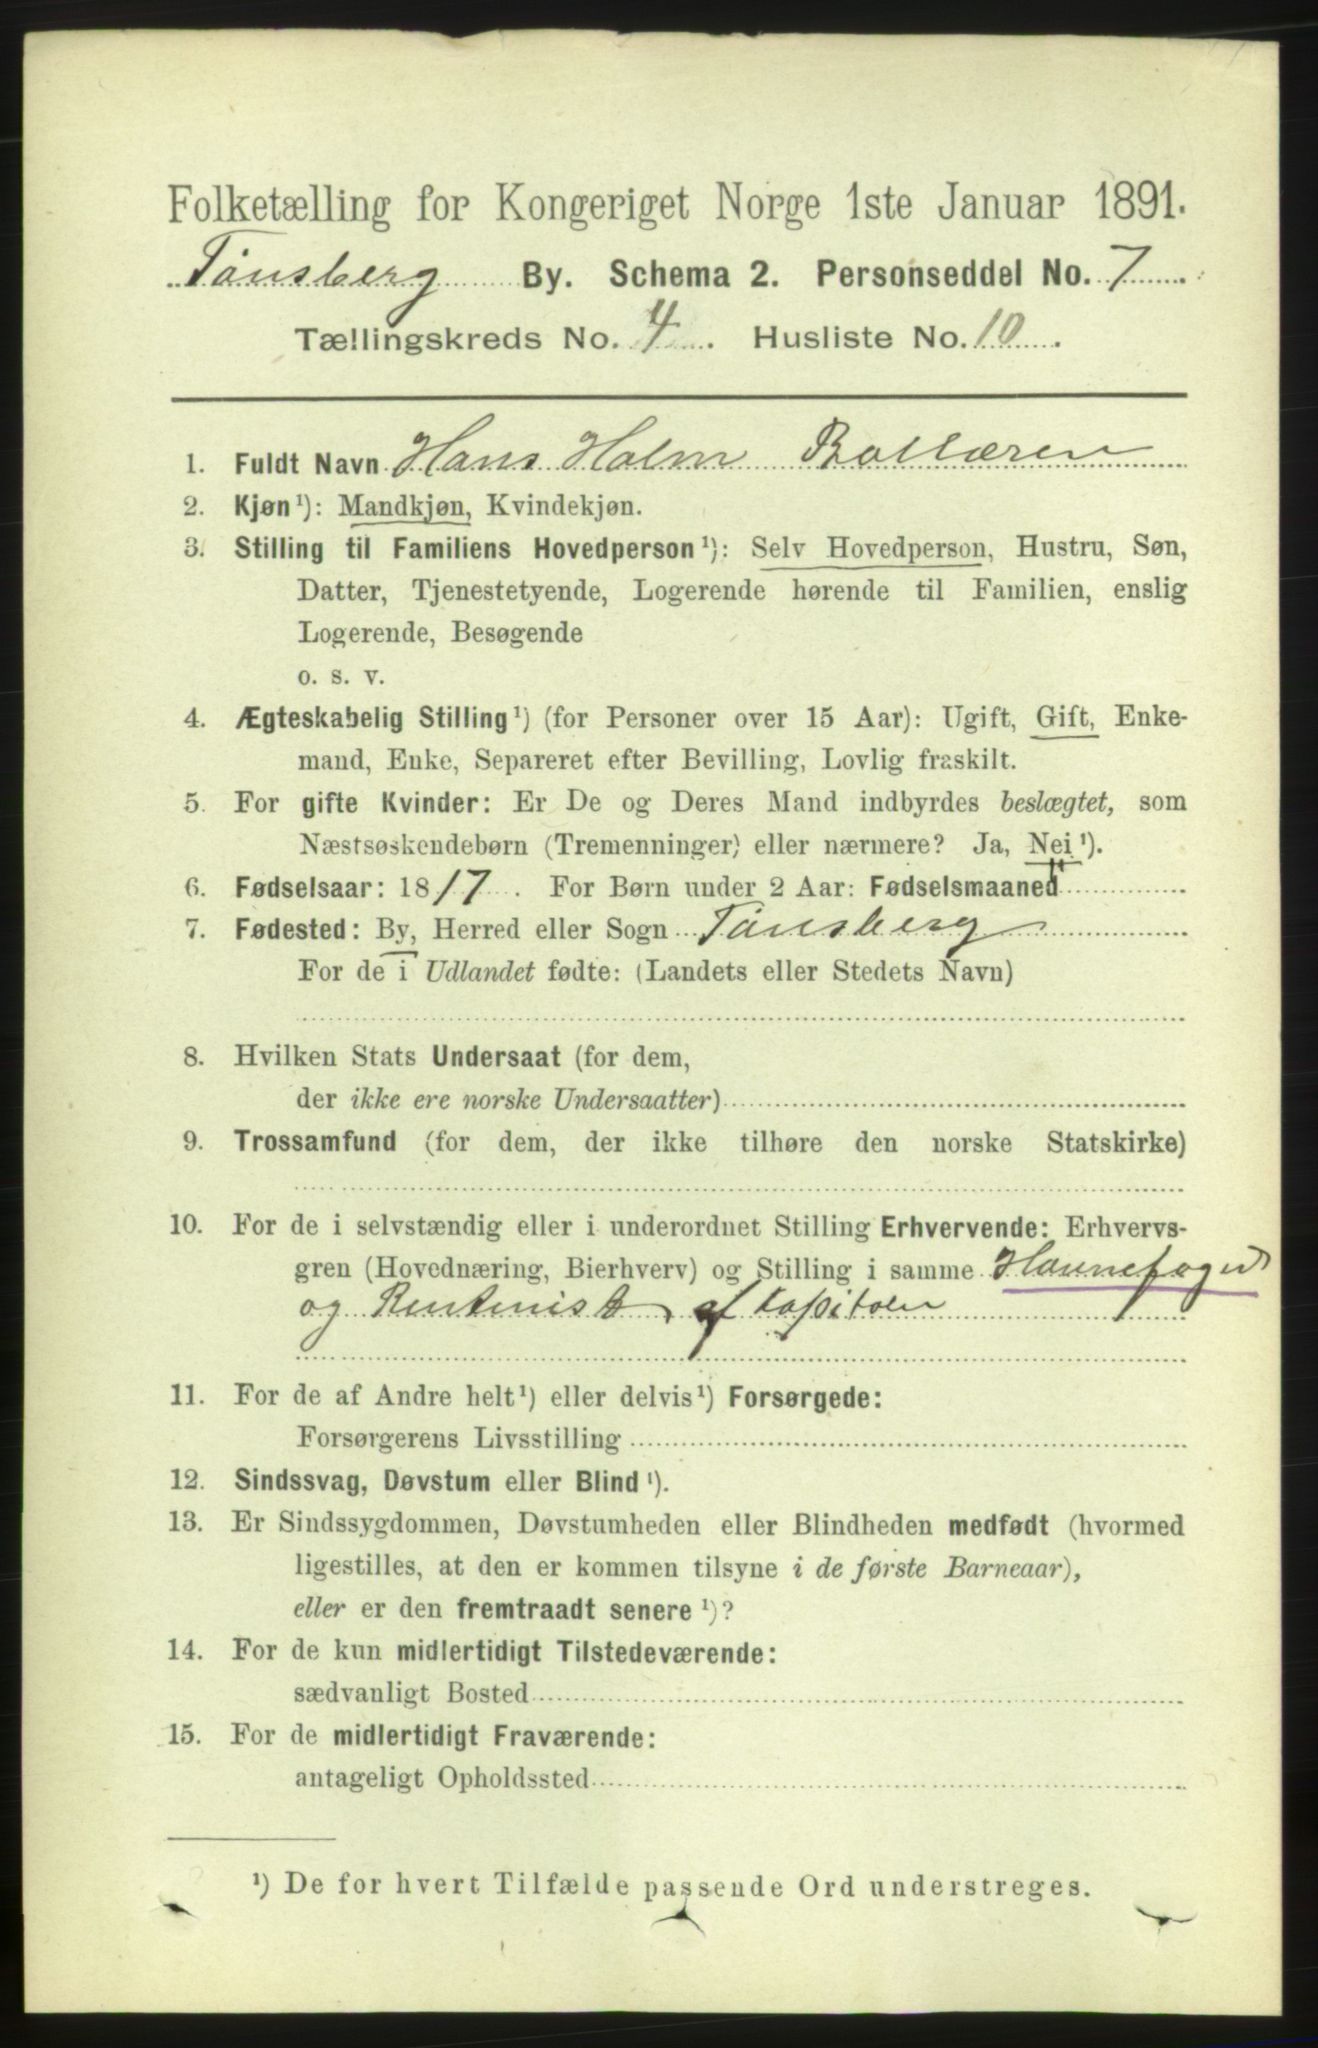 Folketælling for Kongeriget Norge 1ste Januar 1891.
Tønsberg By. Schema 2. Personseddel No. 7
Tællingskreds No. 4. Husliste No. 10.
1. Fuldt Navn Hans Holm Bollæren
2. Kjøn¹): Mandkjøn, Kvindekjøn.
3. Stilling til Familiens Hovedperson¹): Selv Hovedperson, Hustru, Søn,
Datter, Tjenestetyende, Logerende hørende til Familien, enslig
Logerende, Besøgende
o. s. v.
4. Ægteskabelig Stilling¹) (for Personer over 15 Aar): Ugift, Gift, Enke-
mand, Enke, Separeret efter Bevilling, Lovlig fraskilt.
5. For gifte Kvinder: Er De og Deres Mand indbyrdes beslægtet, som
Næstsøskendebørn (Tremenninger) eller nærmere? Ja, Nei¹).
6. Fødselsaar: 1817. For Børn under 2 Aar: Fødselsmaaned
7. Fødested: By, Herred eller Sogn Tønsberg
For de i Udlandet fødte: (Landets eller Stedets Navn)
8. Hvilken Stats Undersaat (for dem,
der ikke ere norske Undersaatter)
9. Trossamfund (for dem, der ikke tilhøre den norske Statskirke)
10. For de i selvstændig eller i underordnet Stilling Erhvervende: Erhvervs-
gren (Hovednæring, Bierhverv) og Stilling i samme Havnefoged
og Rentenist af Kapitaler
11. For de af Andre helt¹) eller delvis¹) Forsørgede:
Forsørgerens Livsstilling
12. Sindssvag, Døvstum eller Blind¹).
13. Er Sindssygdommen, Døvstumheden eller Blindheden medfødt (hvormed
ligestilles, at den er kommen tilsyne i de første Barneaar),
eller er den fremtraadt senere¹)?
14. For de kun midlertidigt Tilstedeværende:
sædvanligt Bosted
15. For de midlertidigt Fraværende:
antageligt Opholdssted
¹) De for hvert Tilfælde passende Ord understreges.